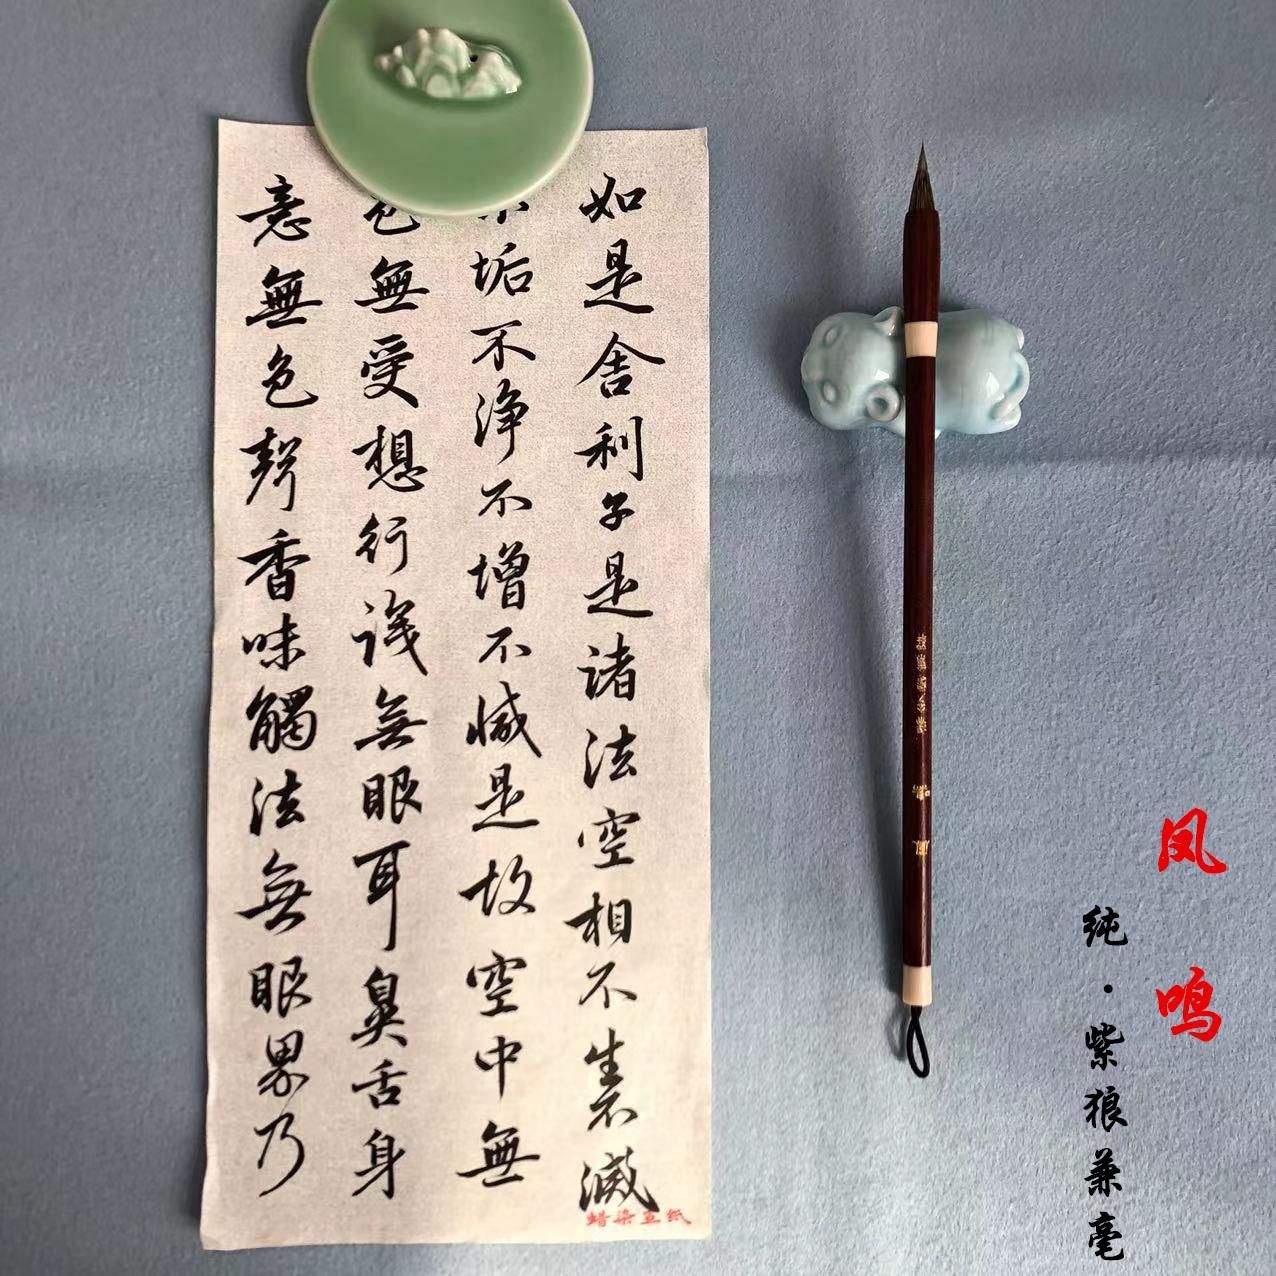 如是舍利子是诸法空相不生不滅
不垢不浄不增不减是故空中無
色無受想行識無眼耳鼻舌身
意無色聲香味觸法無眼界乃
蜡染宣纸
凤鸣
纯·紫狼兼毫
凤鸣